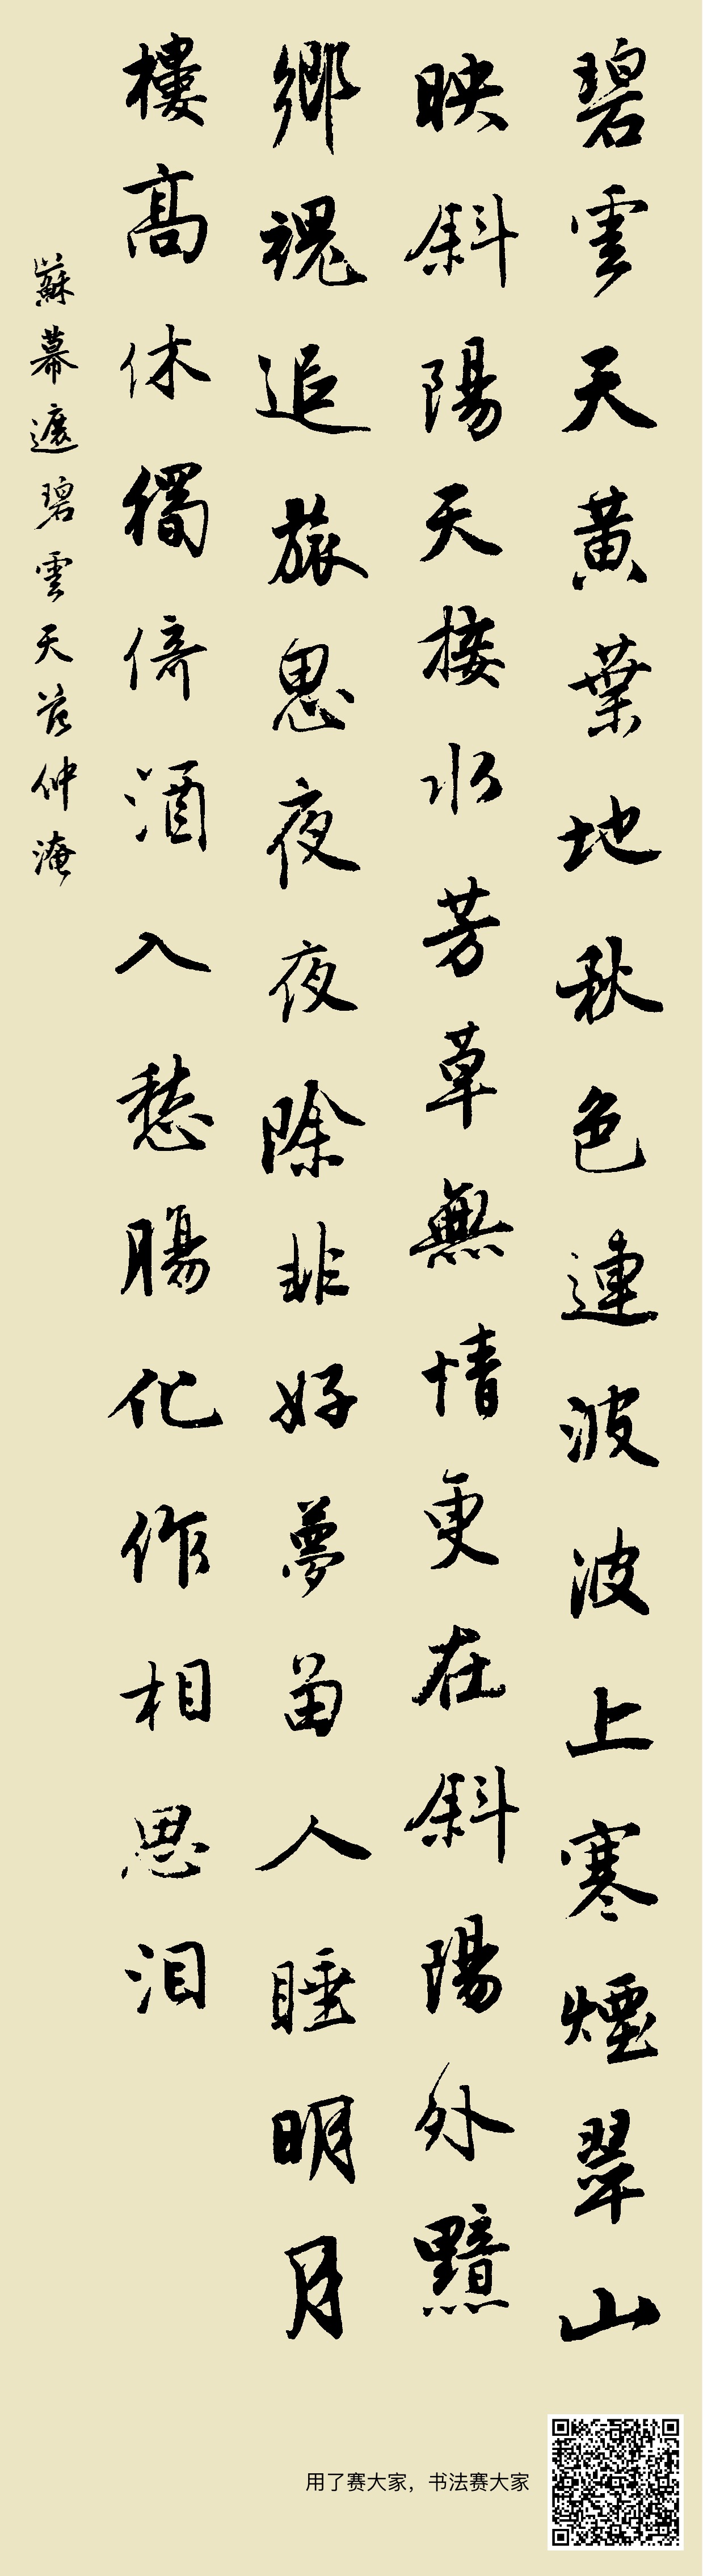 碧雲天黃葉地秋色連波波上寒煙翠山
映斜陽天接水芳草無情更在斜陽外黯
鄉魂追旅思夜夜除非好夢留人睡明月
樓高休獨倚酒入愁腸化作相思泪
蘇幕遮碧雲天范仲淹
用了赛大家，书法赛大家